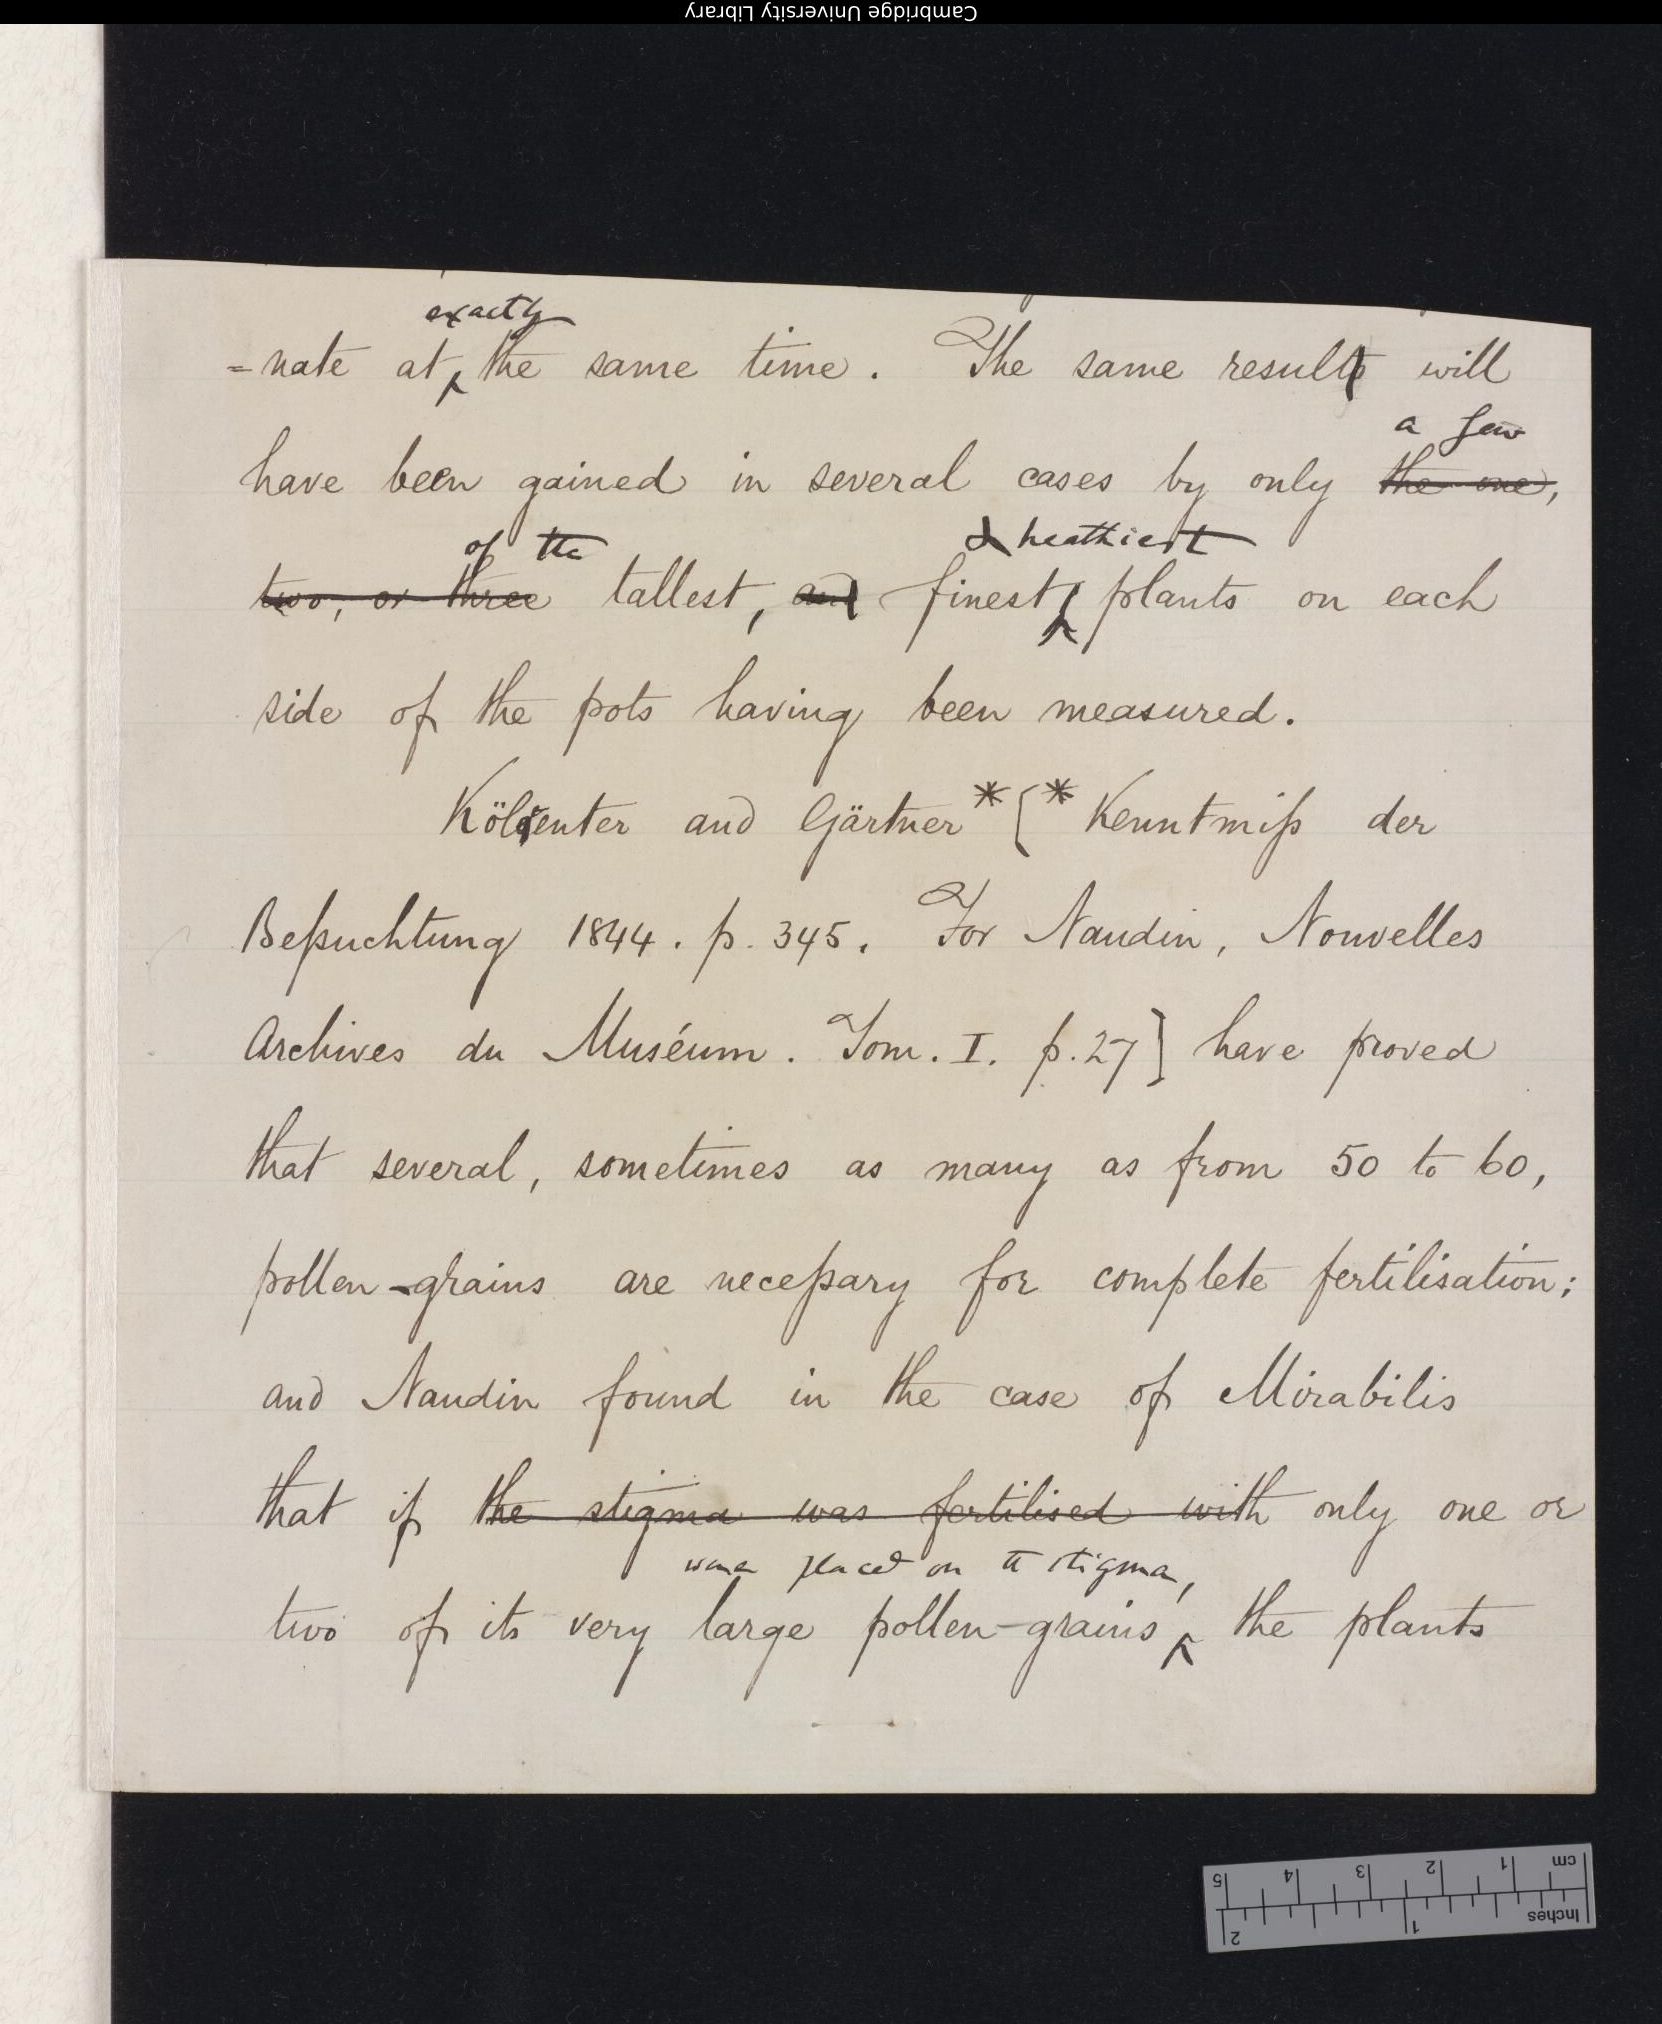 Cambridge University Library
exactly
=nate at ‸ the same time. The same result will
a few
have been gained in several cases by only the one,
of the & healthiest
two, or three tallest, and finest ‸ plants on each
side of the pots having been measured.
Kölreuter and Gärtner * [ * Kenntniß der
Befruchtung 1844. p. 345. For Naudin, Nouvelles
Archives du Muséum. Tom. I. p. 27] have proved
that several, sometimes as many as from 50 to 60,
pollen-grains are neceßary for complete fertilisation;
and Naudin found in the case of Mirabilis
that if the stigma was fertilised with only one or
were placed on the stigma,
two of its very large pollen-grains ‸ the plants
cm 1 2 3 4 5
Inches 1 2